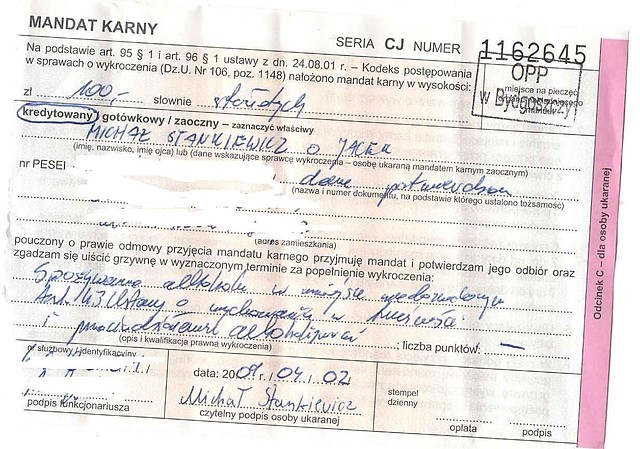 MANDAT KARNY
SERIA CJ NUMER 1162645
Na podstawie art. 95 § 1 i art. 96 § 1 ustawy z dn. 24.08.01 r. – Kodeks postępowania
w sprawach o wykroczenia (Dz.U. Nr 106, poz. 1148) nałożono mandat karny w wysokości:
OPP
w Bydgoszczy
miejsce na pieczęć
zł 100,- słownie sto złotych
kredytowany / gotówkowy / zaoczny – zaznaczyć właściwy
MICHAŁ STANKIEWICZ o JACEK
(imię, nazwisko, imię ojca) lub (dane wskazujące sprawcę wykroczenia – osobę ukaraną mandatem karnym zaocznym)
nr PESEL
dane potwierdzon
(nazwa i numer dokumentu, na podstawie którego ustalono tożsamość)
(adres zamieszkania)
pouczony o prawie odmowy przyjęcia mandatu karnego przyjmuję mandat i potwierdzam jego odbiór oraz
zgadzam się uiścić grzywnę w wyznaczonym terminie za popełnienie wykroczenia:
Spożywanie alkoholu w miejscu niedozwolonym
Art. 43 Ustawy o wychowaniu w trzeźwości
i przeciwdziałaniu alkoholizmowi
; liczba punktów: —
(opis i kwalifikacja prawna wykroczenia)
nr służbowy / identyfikacyjny
data: 2009 r. / 04 / 02
Michał Stankiewicz
podpis funkcjonariusza
czytelny podpis osoby ukaranej
stempel
dzienny
opłata
podpis
Odcinek C – dla osoby ukaranej